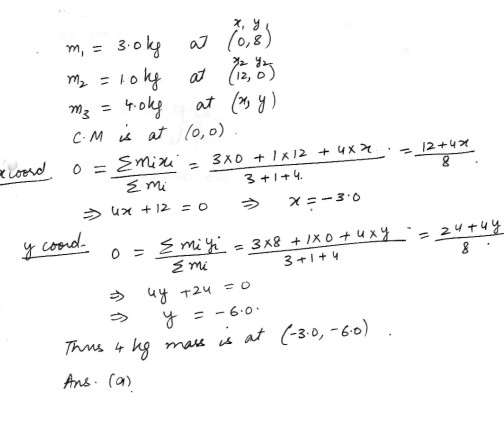 x, y,
m₁ = 3.0 kg at (0,8)
x₂ y₂
m₂ = 1.0 kg at (12, 0)
m₃ = 4.0 kg at (x, y)
C.M is at (0,0).
x coord. 0 = Σmixi / Σmi = 3×0 + 1×12 + 4×x / 3+1+4. = 12+4x / 8.
⇒ 4x + 12 = 0 ⇒ x = -3.0
y coord. 0 = Σmiyi / Σmi = 3×8 + 1×0 + 4×y / 3+1+4 = 24+4y / 8.
⇒ 4y + 24 = 0
⇒ y = -6.0.
Thus 4 kg mass is at (-3.0, -6.0).
Ans. (a)